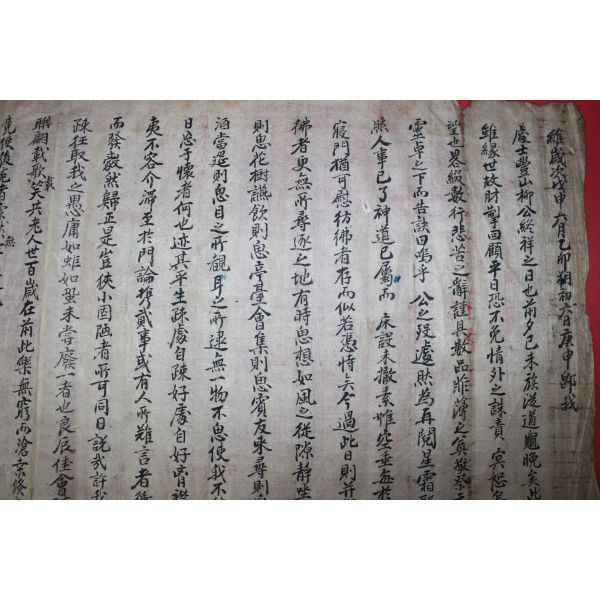 維歲次戊申六月乙卯朔初六日庚申卽我
處士豐山柳公終祥之日也前夕己未族從道鳳晚矣此
雖緣世故財 回顧平日恐不免情外之誅責冥 
望也畧綴數行悲苦之辭謹具數品菲薄之 敬祭
靈卓之下而告訣曰嗚乎公之歿處 然爲再閱星霜
然人事已了神道已屬而床設未撤素帷空垂每於
寢門猶可慰彷彿者存而似若憑恃矣今過此日則并
彿者更無所尋逐之地有時思想如風之從隙靜坐
則思花樹讌飮則思亭臺會集則思賓友來尋則
酒當還則思目之所覩耳之所逮無一物不思使我不
日忘于懷者何也迹其平生疎處自疎好處自好胷襟
夷不容介滯至於門論携貳事或有人所難言者
而發毅然歸正是豈俠小固陋者所可同日說哉許我
疎狂取我之愚庸如蚷如蛩未嘗廢一者也良辰佳會
聯翩載歌載笑共老人世百歲在前此樂無窮而滄桑倏
竟使後死者 無